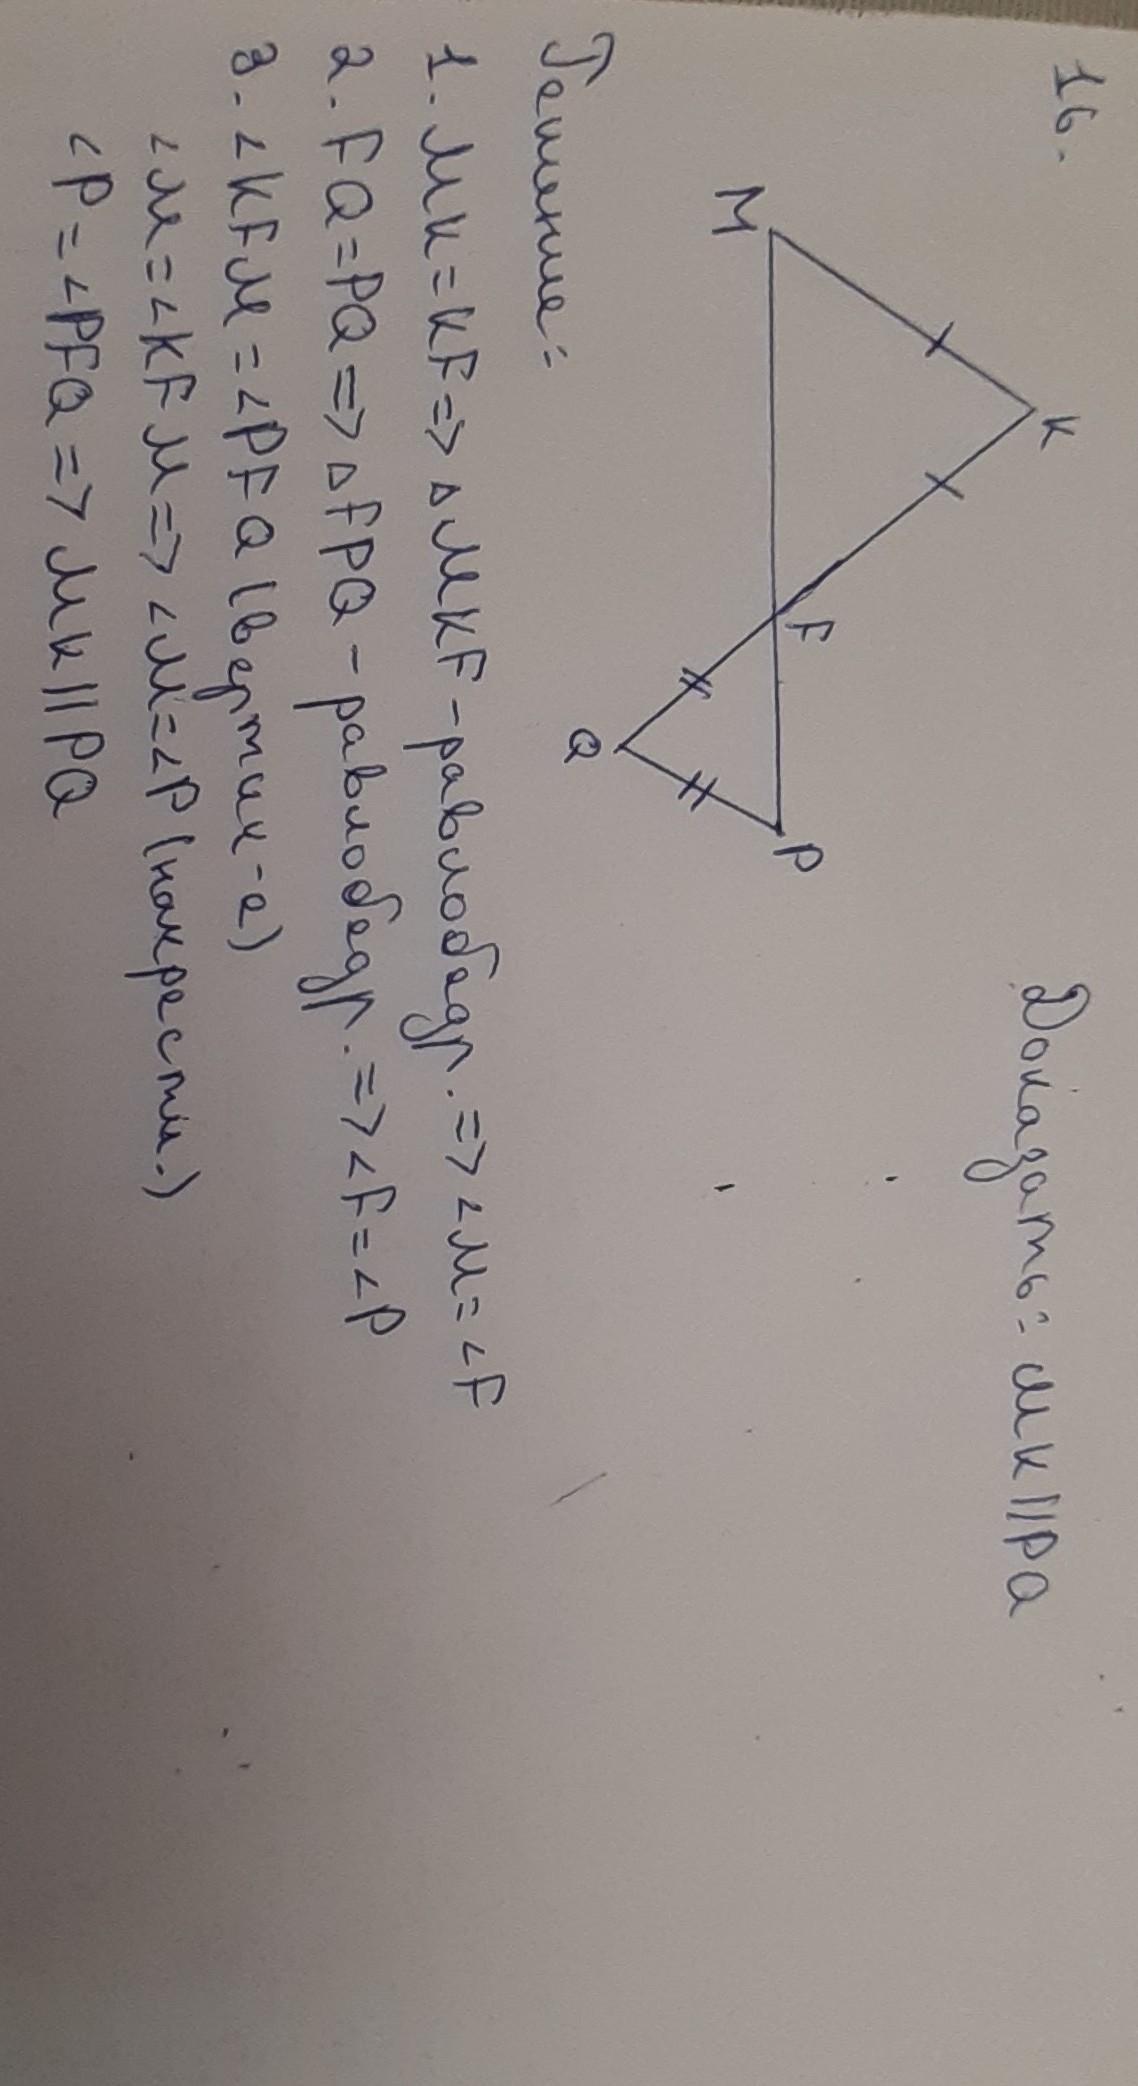 16.
Доказать: MK || PQ
M
K
F
Q
P
Решение:
1. MK = KF => △MKF - равнобедр. => <M = <F
2. FQ = PQ => △FPQ - равнобедр. => <F = <P
3. <KFM = <PFQ (вертик-е)
<M = <KFM => <M = <P (накрестл.)
<P = <PFQ => MK || PQ